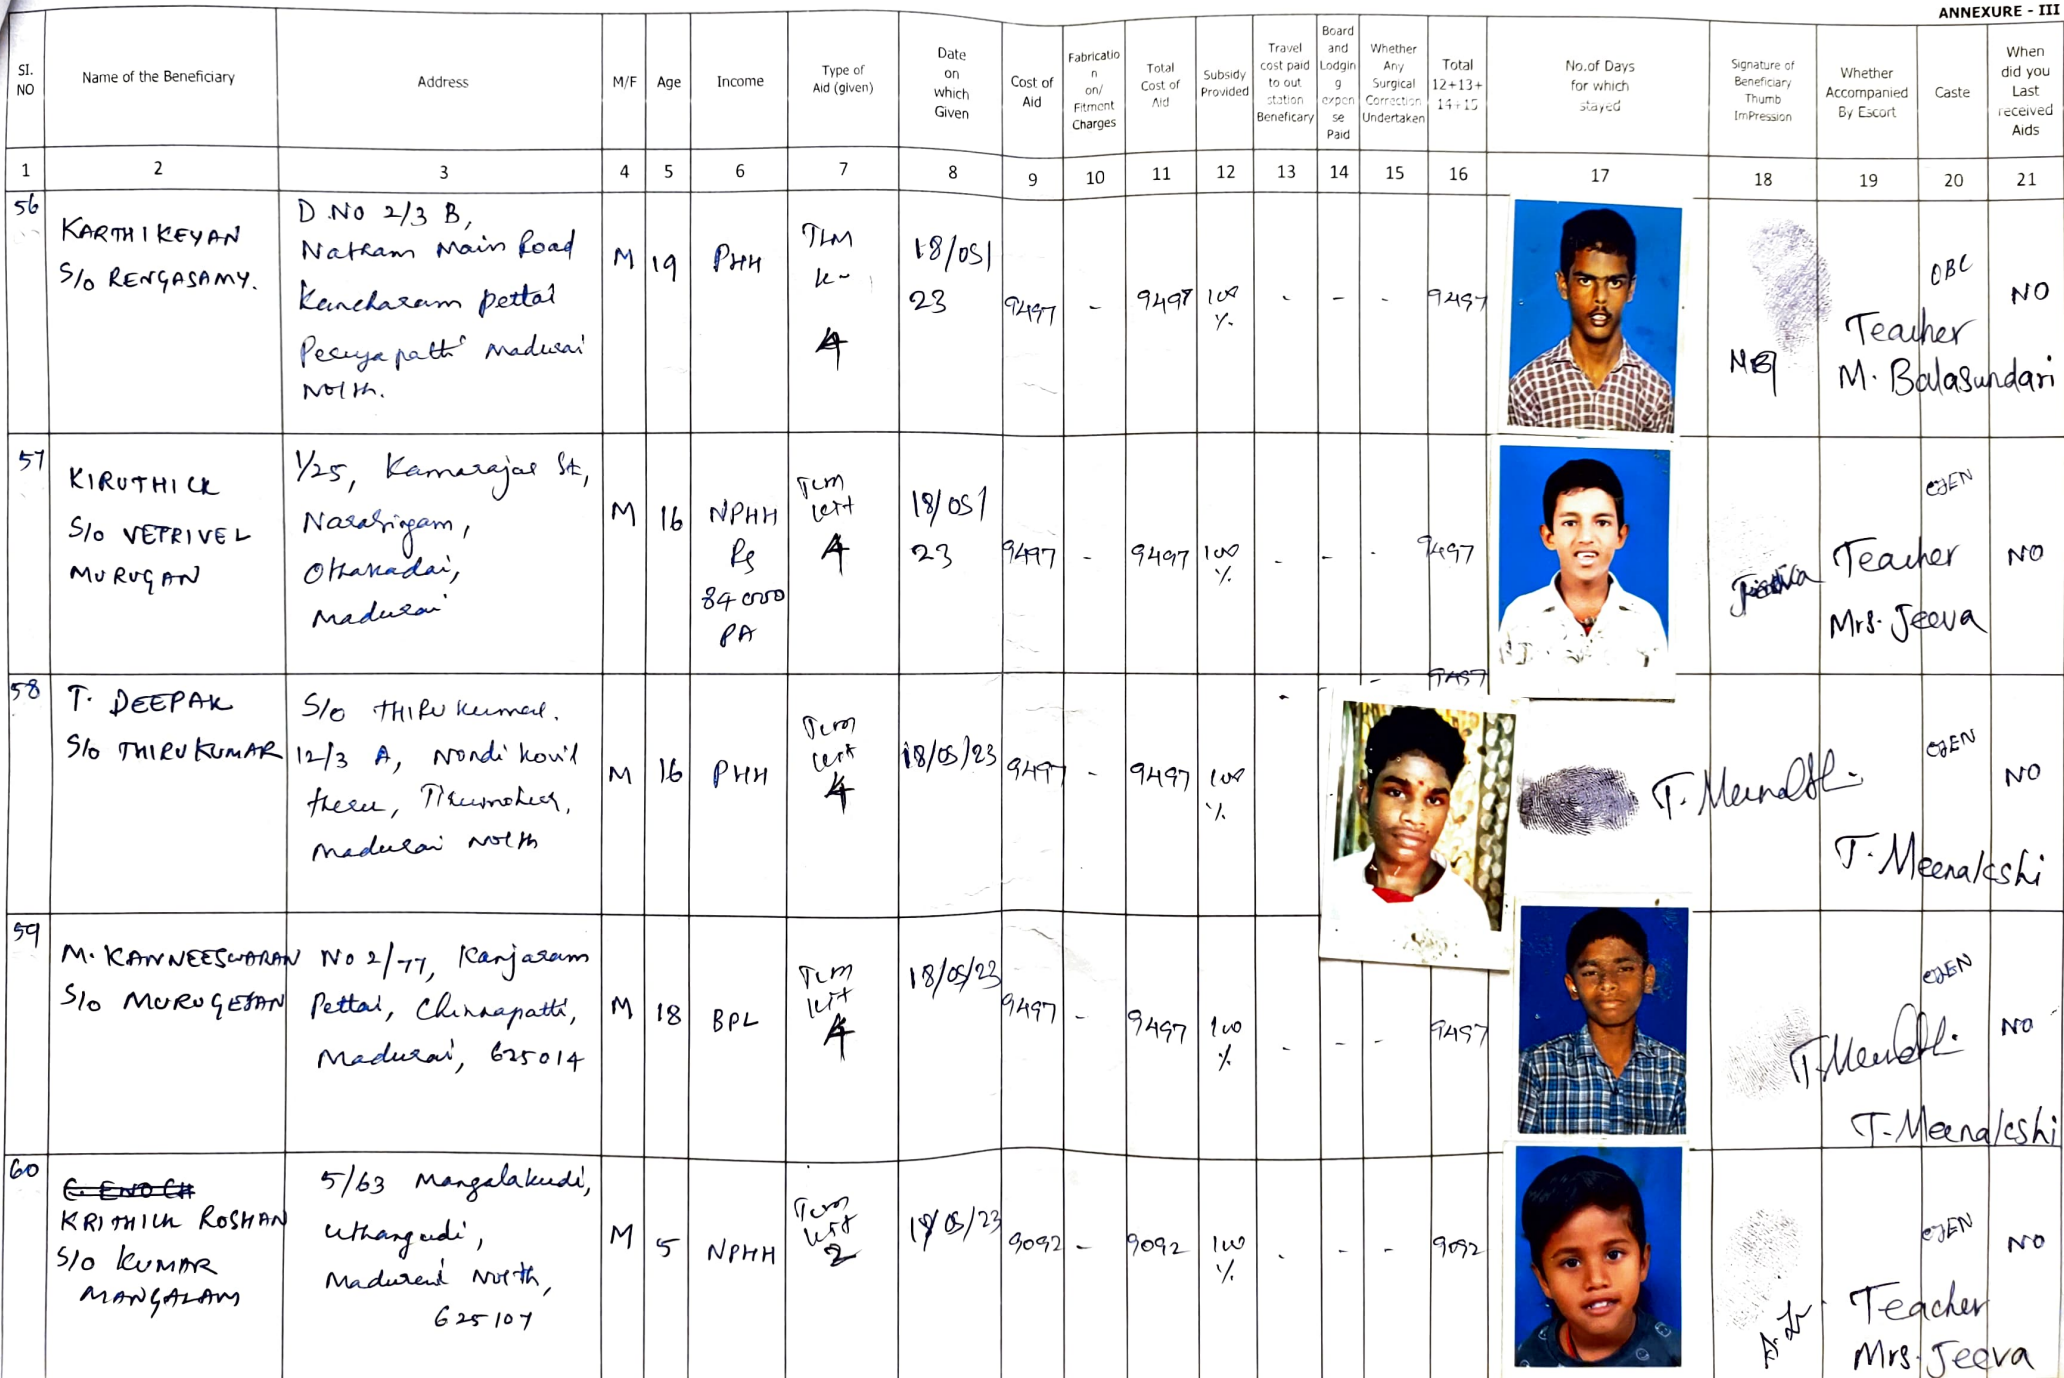 ANNEXURE - III
SI. NO
Name of the Beneficiary
Address
M/F
Age
Income
Type of Aid (given)
Date on which Given
Cost of Aid
Fabricatio n on/ Fitment Charges
Total Cost of Aid
Subsidy Provided
Travel cost paid to out station Beneficary
Board and Lodgin g expen se Paid
Whether Any Surgical Correction Undertaken
Total 12+13+ 14+15
No.of Days for which stayed
Signature of Beneficiary Thumb ImPression
Whether Accompanied By Escort
Caste
When did you Last received Aids
1 2 3 4 5 6 7 8 9 10 11 12 13 14 15 16 17 18 19 20 21
56
KARTHIKEYAN
S/o RENGASAMY.
D.NO 2/3 B,
Natham Main Road
Kancharam pettai
Madurai
North.
M
19
PHH
TLM
4
18/05/
23
9497
-
9497
100
%
-
-
-
9497
OBC
NO
Teacher
M. Balasundari
57
KIRUTHICK
S/o VETRIVEL
MURUGAN
1/25, Kamarajar St,
Narasingam,
Othakadai,
Madurai
M
16
NPHH
Rs
84000
PA
TLM
kit
4
18/05/
23
9497
-
9497
100
%
-
-
-
9497
GEN
NO
Teacher
Mrs. Jeeva
58
T. DEEPAK
S/o THIRUKUMAR
S/o THIRUkumar.
12/3 A, Nondi kovil
theru,
Madurai North
M
16
PHH
TLM
kit
4
18/05/23
9497
-
9497
100
%
-
-
9497
GEN
NO
T. Meenakshi
59
M. KANNEESWARAN
S/o MURUGESAN
No 2/77, Kanjaram
Pettai, Chinnapatti,
Madurai, 625014
M
18
BPL
TLM
kit
4
18/05/23
9497
-
9497
100
%
-
-
-
9497
GEN
NO
T. Meenakshi
60
C. ENOCH
KRITHICK ROSHAN
S/o KUMAR
MANGALAM
5/63 Mangalakudi,
Uthangudi,
Madurai North,
625107
M
5
NPHH
TLM
kit
2
18/05/23
9092
-
9092
100
%
-
-
-
9092
GEN
NO
Teacher
Mrs. Jeeva